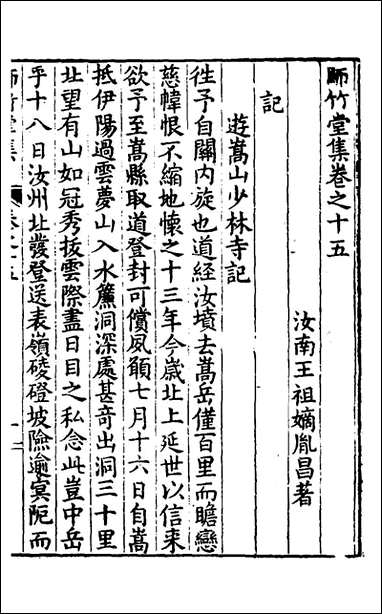 師竹堂集卷之十五
汝南王祖嫡胤昌著
記
遊嵩山少林寺記
徃予自關内旋也道經汝墳去嵩岳僅百里而瞻戀
慈幃恨不縮地懷之十三年今歲北上延世以信来
欲予至嵩縣取道登封可償夙願七月十六日自嵩
抵伊陽過雲夢山入水簾洞深處甚竒出洞三十里
北望有山如冠秀拔雲際盡日目之私念此豈中岳
乎十八日汝州北發登送表嶺磴坡險逾冥阨而
師竹堂集 卷之十五 一